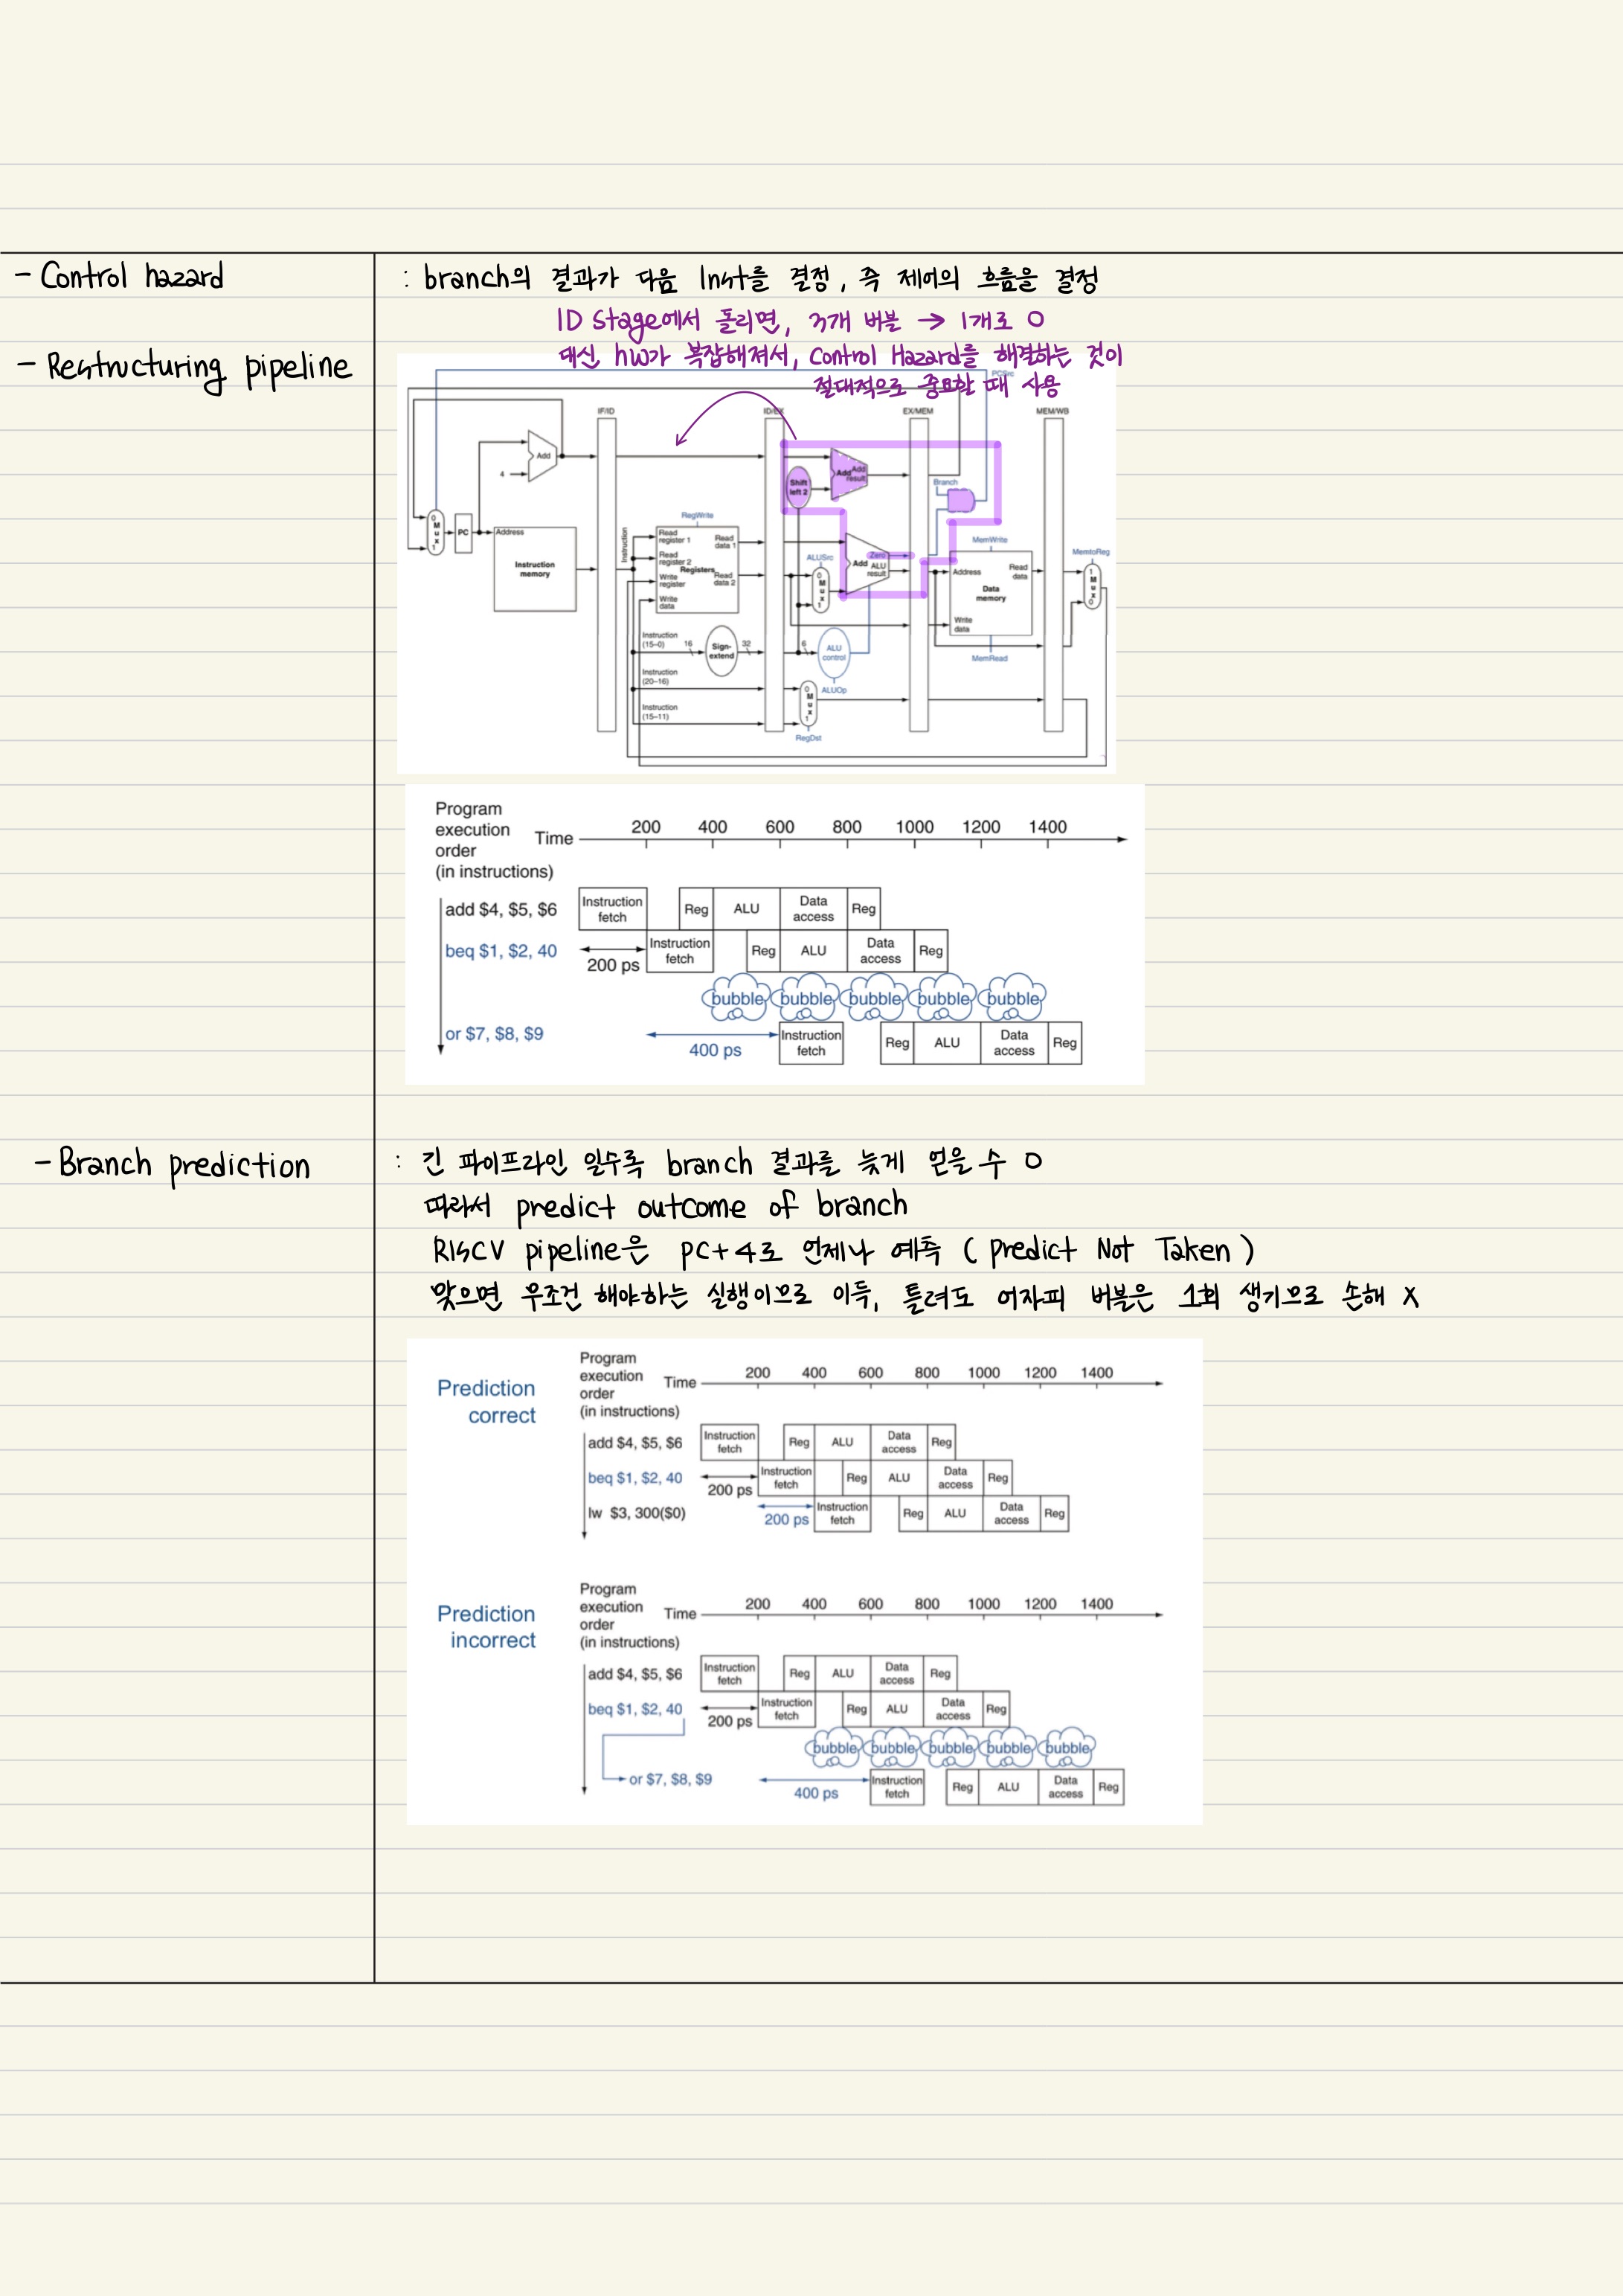 - Control hazard
: branch의 결과가 다음 Inst를 결정, 즉 제어의 흐름을 결정
ID stage에서 돌리면, 3개 버블 → 1개로 O
- Restructuring pipeline
대신 hw가 복잡해져서, Control Hazard를 해결하는 것이
절대적으로 중요할 때 사용
PCSrc
IF/ID
ID/EX
EX/MEM
MEM/WB
Add
4
Shift left 2
Add Add result
Branch
0 Mux 1
PC
Address
Instruction memory
Instruction
RegWrite
Read register 1
Read register 2
Write register
Write data
Registers
Read data 1
Read data 2
ALUSrc
0 Mux 1
Zero
Add ALU result
MemWrite
Address
Read data
Data memory
Write data
MemRead
MemtoReg
1 Mux 0
Instruction (15–0)
16
Sign-extend
32
6
ALU control
ALUOp
Instruction (20–16)
Instruction (15–11)
0 Mux 1
RegDst
Program
execution
order
(in instructions)
Time
200 400 600 800 1000 1200 1400
add $4, $5, $6
Instruction fetch Reg ALU Data access Reg
beq $1, $2, 40
200 ps
Instruction fetch Reg ALU Data access Reg
bubble bubble bubble bubble bubble
or $7, $8, $9
400 ps
Instruction fetch Reg ALU Data access Reg
- Branch prediction
: 긴 파이프라인 일수록 branch 결과를 늦게 얻을 수 O
따라서 predict outcome of branch
RISCV pipeline은 PC+4로 언제나 예측 ( Predict Not Taken )
맞으면 무조건 해야하는 실행이므로 이득, 틀려도 어자피 버블은 1회 생기므로 손해 X
Prediction
correct
Program
execution
order
(in instructions)
Time
200 400 600 800 1000 1200 1400
add $4, $5, $6
Instruction fetch Reg ALU Data access Reg
beq $1, $2, 40
200 ps
Instruction fetch Reg ALU Data access Reg
lw $3, 300($0)
200 ps
Instruction fetch Reg ALU Data access Reg
Prediction
incorrect
Program
execution
order
(in instructions)
Time
200 400 600 800 1000 1200 1400
add $4, $5, $6
Instruction fetch Reg ALU Data access Reg
beq $1, $2, 40
200 ps
Instruction fetch Reg ALU Data access Reg
bubble bubble bubble bubble bubble
or $7, $8, $9
400 ps
Instruction fetch Reg ALU Data access Reg